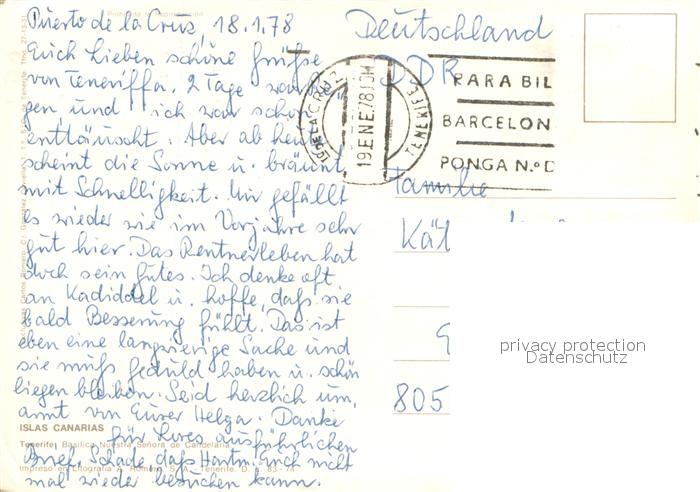 Puerto de la Cruz, 18.1.78
Euch Lieben schöne Grüße
von Teneriffa. 2 Tage
gen und ich war schon
entläuscht. Aber ab heu
scheint die Sonne u. bräunt
mit Schnelligkeit. Mir gefällt
es wieder wie im Vorjahre sehr
gut hier. Das Rentnerleben hat
doch sein Gutes. Ich denke oft
an Kadiddel u. hoffe, daß sie
bald Besserung fühlt. Das ist
eben eine langwierige Sache und
sie muß Geduld haben u. schön
liegen bleiben. Seid herzlich um,
armt von Eurer Helga. Danke
für Euren ausführlichen
Brief. Schade, daß Hartm. Euch nicht
mal wieder besuchen kann.
ISLAS CANARIAS
Tenerife. Basílica Nuestra Señora de Candelaria
Impreso en Litografía A. Romero, S. A. - Tenerife. D. L. 83 - 74
Deutschland
DDR
19 ENE. 78 10M
TENERIFE
PARA BIL
BARCELON
PONGA N.º D
Familie
Kät
805
privacy protection
Datenschutz